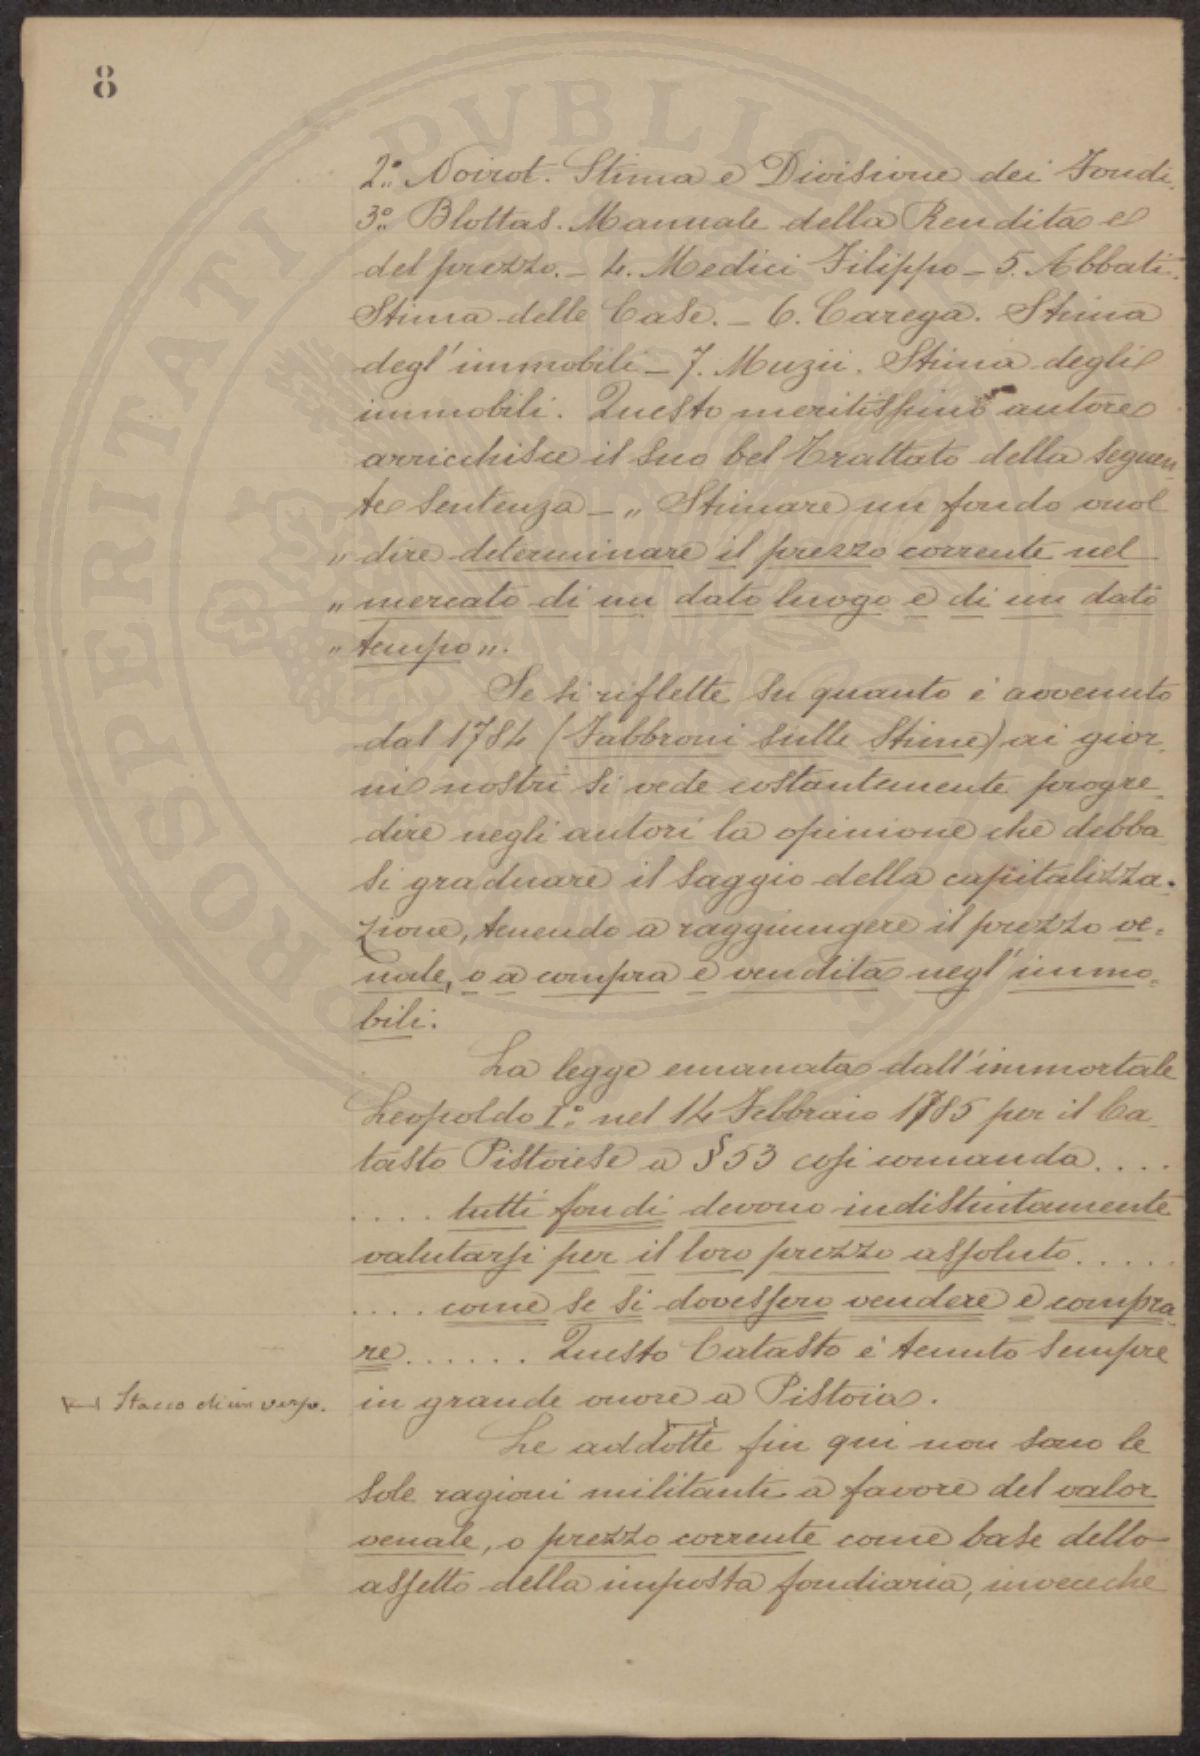 8
2.° Noirot. Stima e Divisione dei Fondi.
3.° Blottas. Manuale della Rendita e
del prezzo. - 4. Medici Filippo - 5. Abbati.
Stima delle Case. - 6. Carega. Stima
degl'immobili - 7. Muzii. Stima degli
immobili. Questo meritissimo autore
arricchisce il suo bel Trattato della seguen-
te sentenza - „ Stimare un fondo vuol
„ dire determinare il prezzo corrente nel
„ mercato di un dato luogo e di un dato
„ tempo „.
Se si riflette su quanto è avvenuto
dal 1784 (Fabbroni sulle Stime) ai gior-
ni nostri si vede costantemente progre-
dire negli autori la opinione che debba
si graduare il saggio della capitalizza-
zione, tenendo a raggiungere il prezzo ve-
nale, o a compra e vendita negl'immo-
bili.
La legge emanata dall'immortale
Leopoldo I.° nel 14 Febbraio 1785 per il Ca-
tasto Pistoiese a § 53 così comanda....
.... tutti fondi devono indistintamente
valutarsi per il loro prezzo assoluto.....
.... come se si dovessero vendere e compra-
re...... Questo Catasto è tenuto sempre
in grande onore a Pistoia.
Stacco di un verso.
Le addotte fin qui non sono le
sole ragioni militanti a favore del valor
venale, o prezzo corrente come base dello
assetto della imposta fondiaria, invece che
PROSPERITATI PUBLIC